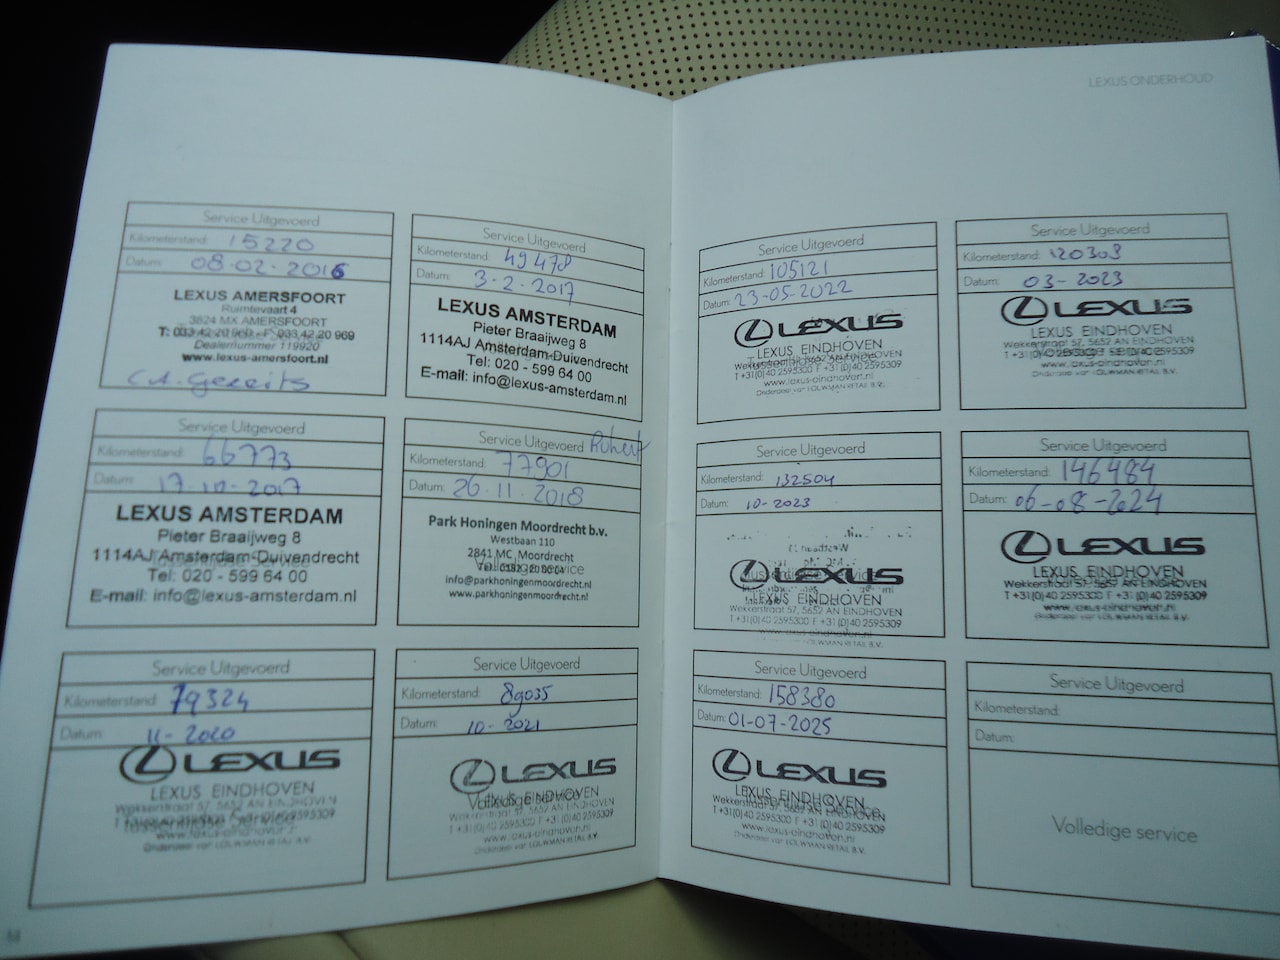 LEXUS ONDERHOUD
Service Uitgevoerd
Kilometerstand: 15220
Datum: 08-02-2016
LEXUS AMERSFOORT
Ruimtevaart 4
3824 MX AMERSFOORT
T: 033 42 20 969 - F: 033 42 20 969
Dealernummer 119920
www.lexus-amersfoort.nl
Service Uitgevoerd
Kilometerstand: 49478
Datum: 3-2-2017
LEXUS AMSTERDAM
Pieter Braaijweg 8
1114AJ Amsterdam-Duivendrecht
Tel: 020 - 599 64 00
E-mail: info@lexus-amsterdam.nl
Service Uitgevoerd
Kilometerstand: 66773
Datum: 17-10-2017
LEXUS AMSTERDAM
Pieter Braaijweg 8
1114AJ Amsterdam-Duivendrecht
Tel: 020 - 599 64 00
E-mail: info@lexus-amsterdam.nl
Service Uitgevoerd
Kilometerstand: 77901
Datum: 26-11-2018
Park Honingen Moordrecht b.v.
Westbaan 110
2841 MC Moordrecht
info@parkhoningenmoordrecht.nl
www.parkhoningenmoordrecht.nl
Service Uitgevoerd
Kilometerstand: 79324
Datum: 11-2020
LEXUS
LEXUS EINDHOVEN
Wekkerstraat 57, 5652 AN EINDHOVEN
www.lexus-eindhoven.nl
Onderdeel van LOUWMAN RETAIL B.V.
Service Uitgevoerd
Kilometerstand: 89035
Datum: 10-2021
LEXUS
Volledige service
LEXUS EINDHOVEN
Wekkerstraat 57, 5652 AN EINDHOVEN
T +31(0)40 2595300 F +31(0)40 2595309
www.lexus-eindhoven.nl
Onderdeel van LOUWMAN RETAIL B.V.
Service Uitgevoerd
Kilometerstand: 105121
Datum: 23-05-2022
LEXUS
LEXUS EINDHOVEN
Wekkerstraat 57, 5652 AN EINDHOVEN
T +31(0)40 2595300 F +31(0)40 2595309
www.lexus-eindhoven.nl
Onderdeel van LOUWMAN RETAIL B.V.
Service Uitgevoerd
Kilometerstand: 120303
Datum: 03-2023
LEXUS
LEXUS EINDHOVEN
Wekkerstraat 57, 5652 AN EINDHOVEN
T +31(0)40 2595300 F +31(0)40 2595309
www.lexus-eindhoven.nl
Onderdeel van LOUWMAN RETAIL B.V.
Service Uitgevoerd
Kilometerstand: 132504
Datum: 10-2023
LEXUS
LEXUS EINDHOVEN
Wekkerstraat 57, 5652 AN EINDHOVEN
T +31(0)40 2595300 F +31(0)40 2595309
www.lexus-eindhoven.nl
Onderdeel van LOUWMAN RETAIL B.V.
Service Uitgevoerd
Kilometerstand: 146484
Datum: 06-08-2024
LEXUS
LEXUS EINDHOVEN
Wekkerstraat 57, 5652 AN EINDHOVEN
T +31(0)40 2595300 F +31(0)40 2595309
www.lexus-eindhoven.nl
Onderdeel van LOUWMAN RETAIL B.V.
Service Uitgevoerd
Kilometerstand: 158380
Datum: 01-07-2025
LEXUS
LEXUS EINDHOVEN
Wekkerstraat 57, 5652 AN EINDHOVEN
T +31(0)40 2595300 F +31(0)40 2595309
www.lexus-eindhoven.nl
Onderdeel van LOUWMAN RETAIL B.V.
Service Uitgevoerd
Kilometerstand:
Datum:
Volledige service